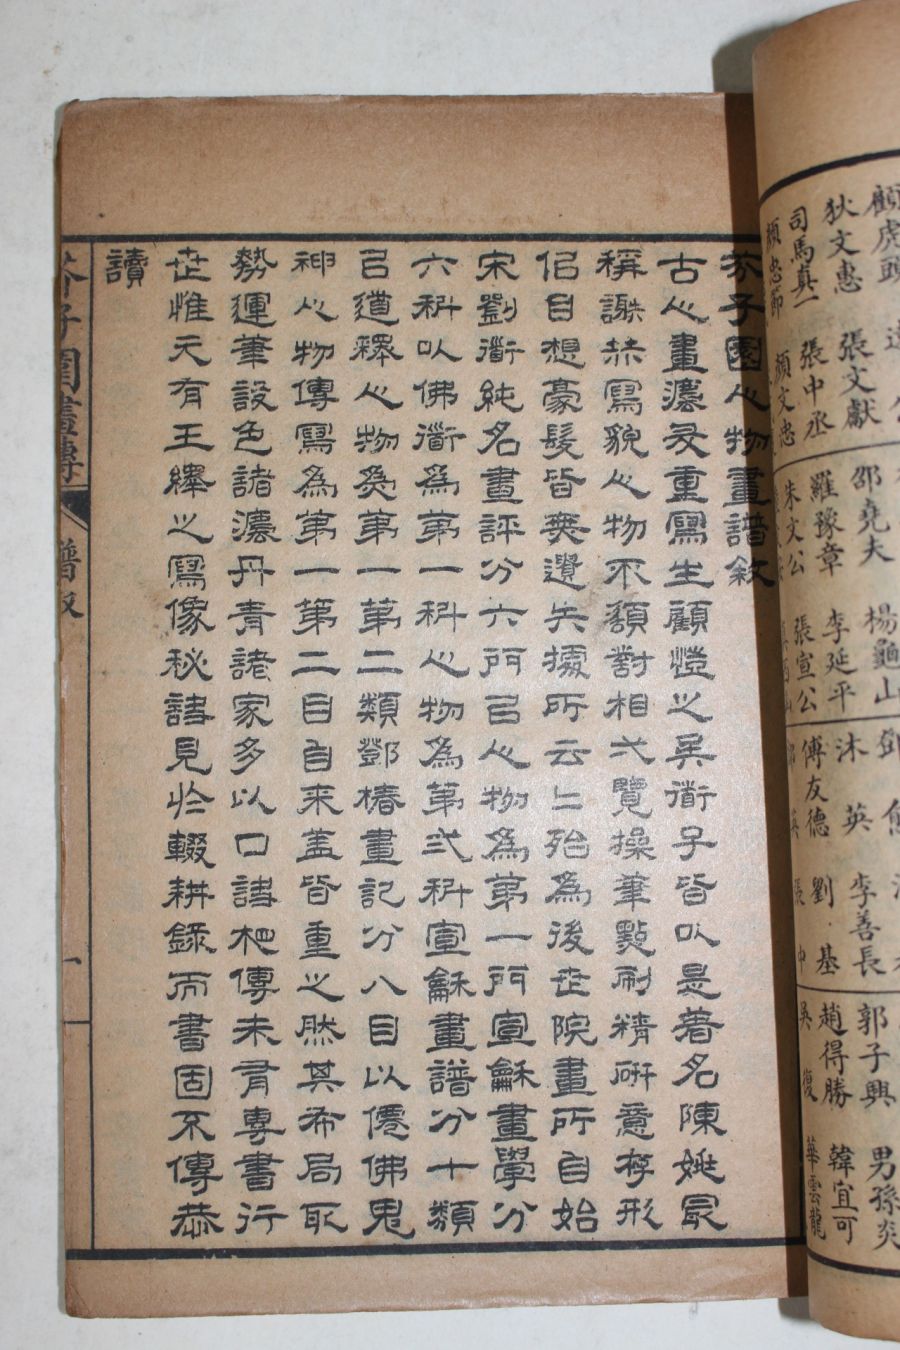 顧虎頭
狄文惠 張文獻 邵堯夫 楊龜山
司馬真一 張中丞 羅豫章 李延平 沐英 李善長 郭子興 男孫炎
顏忠節 顏文忠 朱文公 張宣公 傅友德 劉基 趙得勝 韓宜可
吳復 華雲龍
芥子園人物畫譜敘
古人畫濃叐重寫生顧愷之吳衜子皆以是著名陳姚冣
稱謝赫寫貌人物不額對相弌覽操筆點刷精硏意存形
侶目想豪髮皆無遺失據所云云殆為後世院畫所自始
宋劉衜純名畫評分六門㠯人物為第一門宣龢畫學分
六科以佛衜為第一科人物為第弍科宣龢畫譜分十類
㠯道釋人物為第一第二類鄧椿畫記分八目以僊佛鬼
神人物傳寫為第一第二目自來盖皆重之然其布局取
勢運筆設色諸濃丹青諸家多以口訣相傳未有專書行
世惟元有王繹之寫像秘訣見於輟耕錄而書固不傳恭
讀
芥子園畫傳 譜敘 一